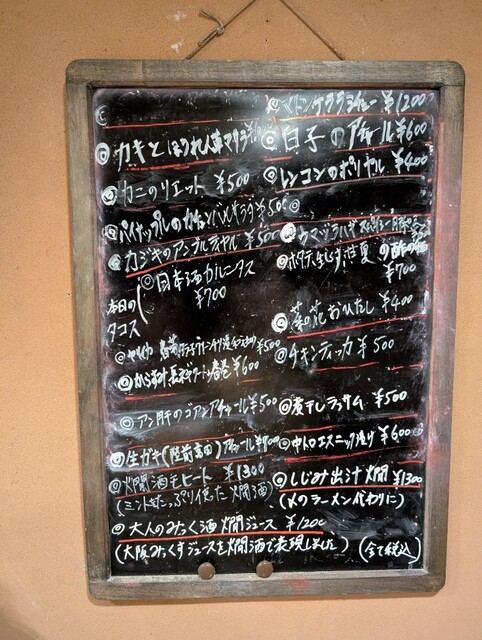 ◎カキとほうれん草マサラ
◎カニのリエット ¥500
◎パイナップルの ¥500
◎カジキのアンブルティヤル ¥500
本日の
タコス
◎日本酒カルニタス
¥700
◎ヤリイカ 春菊 ¥500
◎からすみ 春巻 ¥600
◎アン肝のゴアンアチャール ¥500
◎生ガキ(陸前高田)アチャール
◎燗酒モヒート ¥1300
(ミントたっぷり使った燗酒)
◎大人のみっく酒 燗ジュース ¥1200
(大阪みっくすジュースを燗酒で表現しました)
◎マトンウララティヤー ¥1200
◎白子のアチャール ¥600
◎レンコンのポリヤル ¥400
◎ウマヅラハギ
◎ホタテ、生しらす、甘夏の酢の物
¥700
◎菜の花おひたし ¥400
◎チキンティッカ ¥500
◎煮干しラッサム ¥500
◎中トロエスニック漬け ¥600
◎しじみ出汁燗 ¥1300
(〆のラーメン代わりに)
(全て税込)